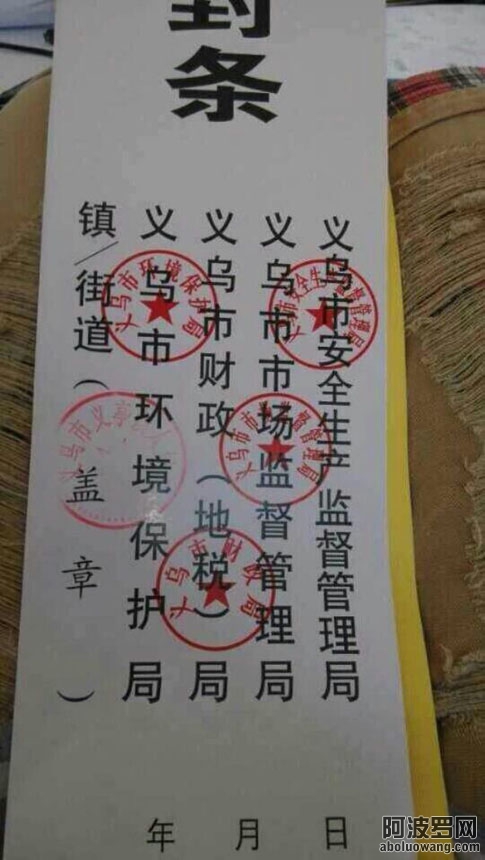 封条
义乌市安全生产监督管理局
义乌市市场监督管理局
义乌市财政（地税）局
义乌市环境保护局
镇/街道（盖章）
义乌市安全生产监督管理局
义乌市市场监督管理局
义乌市财政局
义乌市环境保护局
义乌市义亭
年 月 日
阿波罗网
aboluowang.com